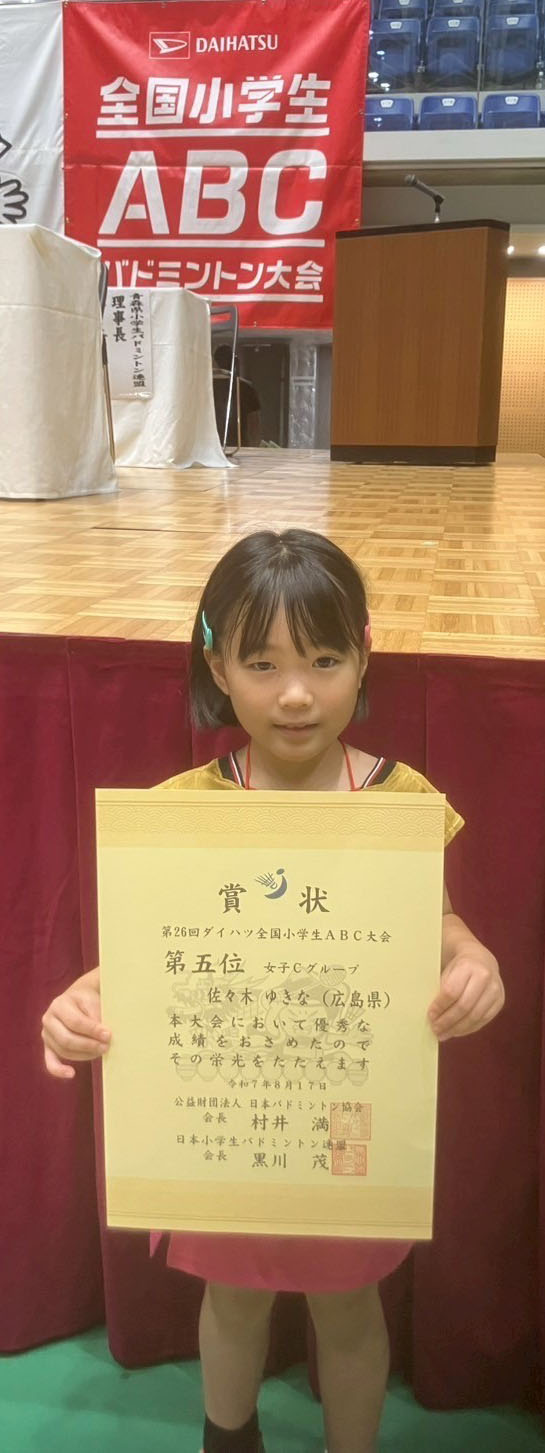 DAIHATSU
全国小学生
ABC
バドミントン大会
青森県小学生バドミントン連盟
理事長
賞状
第26回ダイハツ全国小学生ABC大会
第五位 女子Cグループ
佐々木 ゆきな（広島県）
本大会において優秀な
成績をおさめたので
その栄光をたたえます
令和7年8月17日
公益財団法人 日本バドミントン協会
会長 村井 満
日本小学生バドミントン連盟
会長 黒川 茂